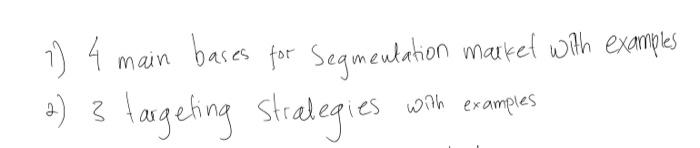 1) 4 main bases for Segmentation market with examples
2) 3 targeting strategies with examples